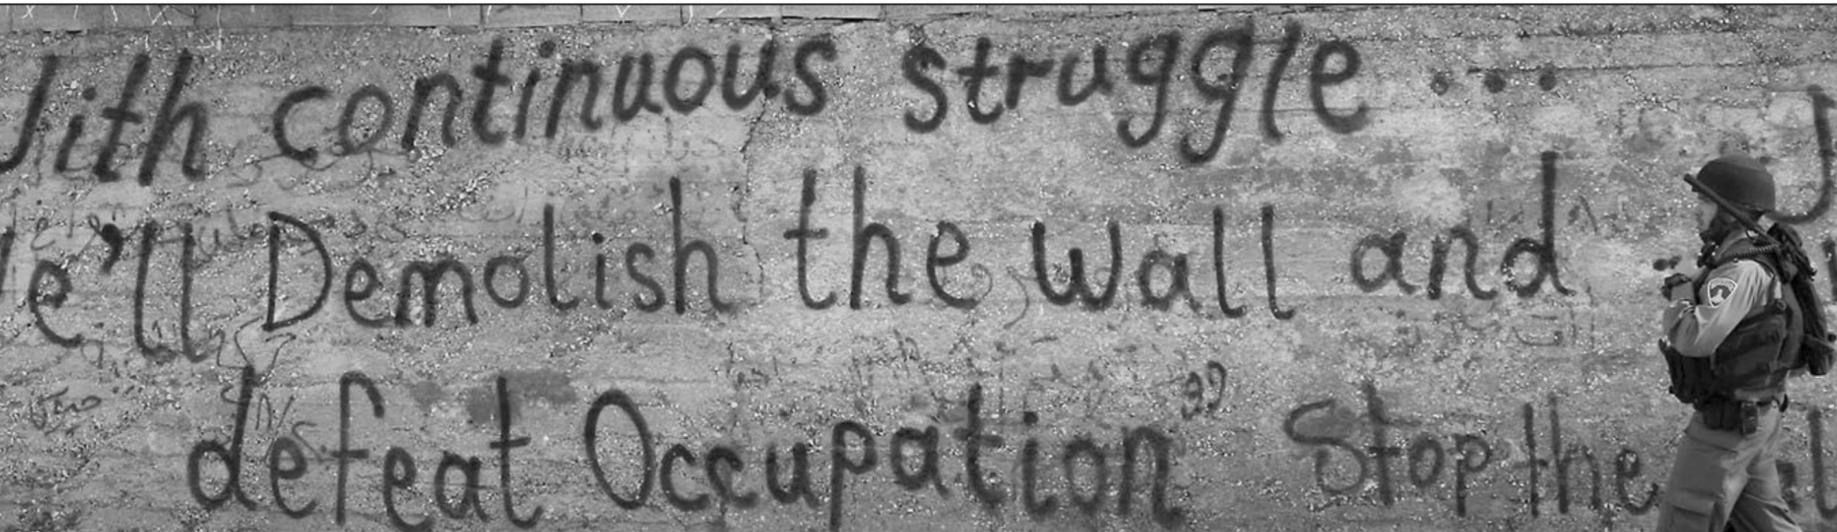 With continuous struggle...
We'll Demolish the wall and
defeat Occupation"
Stop the